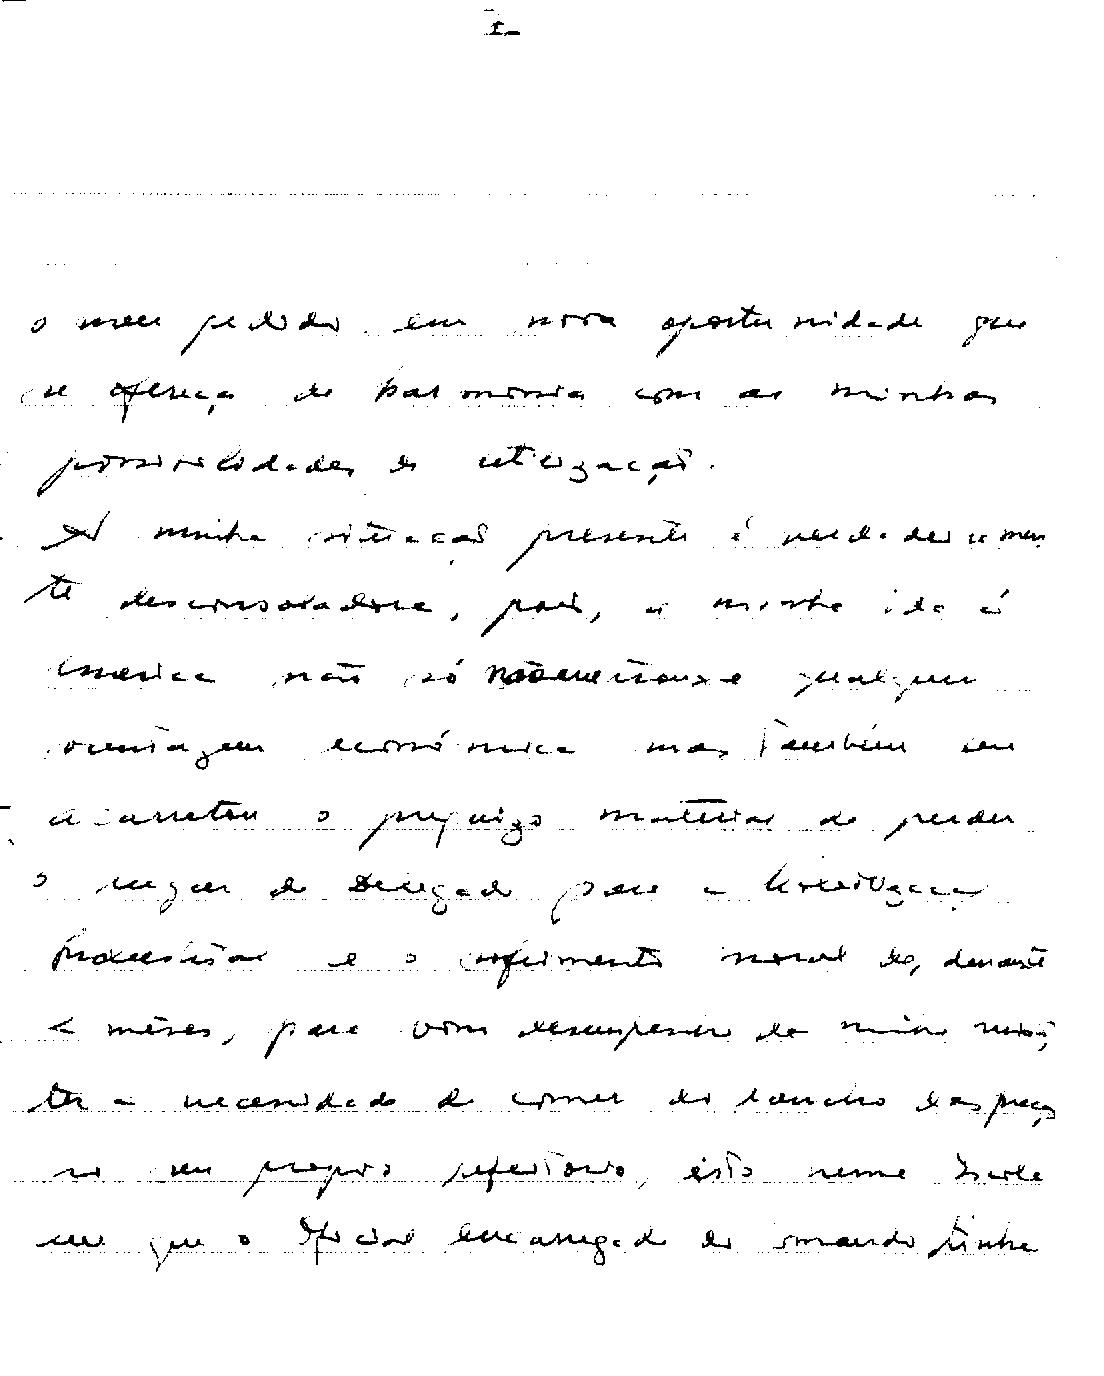 o meu pedido em nova oportunidade que
se ofereça de harmonia com as minhas
possibilidades de utilização.
A minha situação presente é verdadeiramen
te desconsoladora, pois, a minha ida á
não só qualquer
vantagem económica mas também me
acarretou o prejuizo material de perder
o lugar de Delegado para a
e o sofrimento moral de, durante
meses, para bom desempenho da minha
ter a necessidade de comer do rancho das praças
no seu proprio refeitorio, isto numa
em que o Oficial encarregado do comando tinha